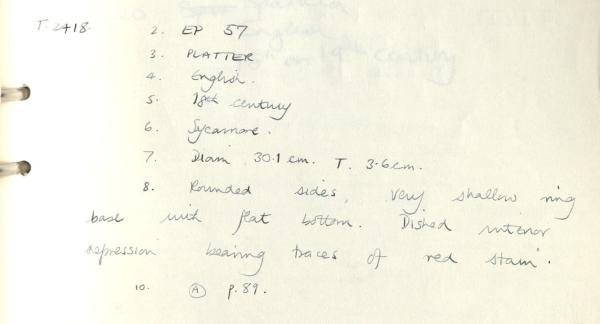 T. 2418. 2. EP 57
3. PLATTER
4. English.
5. 18th century
6. Sycamore.
7. Diam 30.1 cm. T. 3.6 cm.
8. Rounded sides, very shallow ring
base with flat bottom. Dished interior
depression bearing traces of red stain.
10. Ⓐ p. 89.